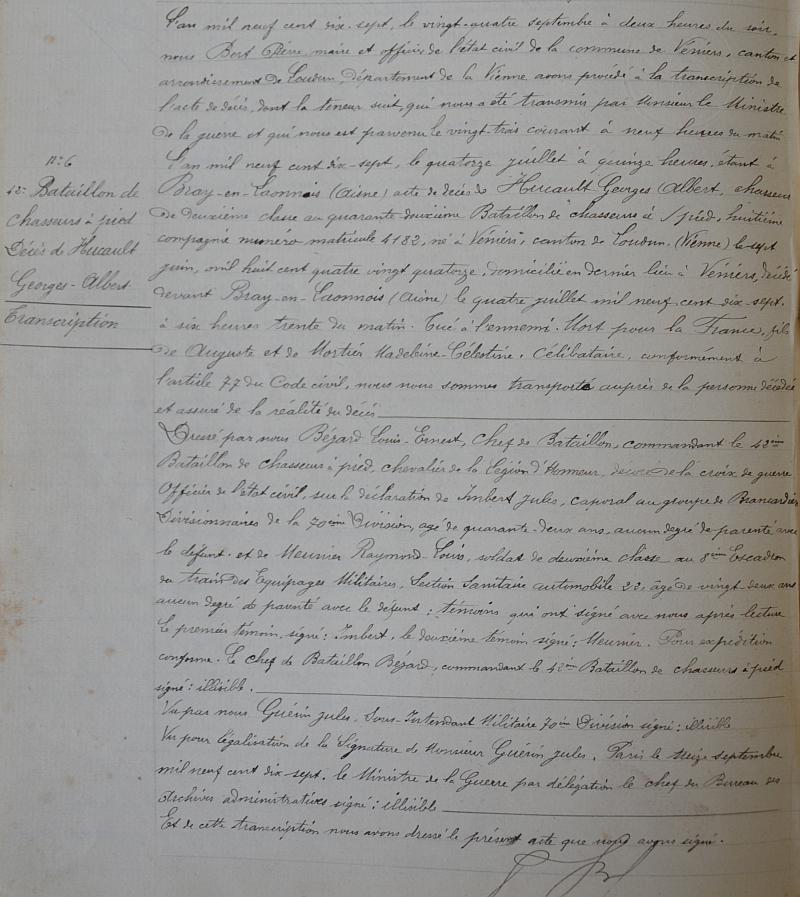 L'an mil neuf cent dix-sept, le vingt-quatre septembre à deux heures du soir,
nous Bert Pierre, maire et officier de l'état civil de la commune de Véniers, canton et
arrondissement de Loudun, département de la Vienne avons procédé à la transcription de
l'acte de décès, dont la teneur suit, qui nous a été transmis par Monsieur le Ministre
de la guerre et qui nous est parvenu le vingt trois courant à neuf heures du matin
N° 6
42e Bataillon de
chasseurs à pied
Décès de Hucault
Georges-Albert
Transcription
L'an mil neuf cent dix-sept, le quatorze juillet à quinze heures, étant à
Bray-en-Laonnois (Aisne) acte de décès de Hucault Georges Albert, chasseur
de deuxième classe au quarante deuxième Bataillon de chasseurs à pied, huitième
compagnie numéro matricule 4182, né à Véniers, canton de Loudun. (Vienne) le sept
juin, mil huit cent quatre vingt quatorze, domicilié en dernier lieu à Véniers, décédé
devant Bray-en-Laonnois (Aisne) le quatre juillet mil neuf cent dix sept.
à six heures trente du matin. Tué à l'ennemi. Mort pour la France, fils
de Auguste et de Mortier Madeleine-Célestine. Célibataire, conformément à
l'article 77 du Code civil, nous nous sommes transporté auprès de la personne décédée
et assuré de la réalité du décès
Dressé par nous Bézard Louis-Ernest, Chef de Bataillon, commandant le 42ème
Bataillon de chasseurs à pied, chevalier de la Légion d'Honneur, décoré de la croix de guerre
Officier de l'état civil, sur la déclaration de Imbert Jules, caporal au groupe de Brancardiers
Divisionnaires de la 70ème Division, agé de quarante-deux ans, aucun degré de parenté avec
le défunt. et de Meunier Raymond-Louis, soldat de deuxième classe au 8ème Escadron
du train des Equipages Militaires, Section Sanitaire automobile 22, âgé de vingt deux ans
aucun degré de parenté avec le défunt; témoins qui ont signé avec nous après lecture
Le premier témoin, signé: Imbert, le deuxième témoin signé: Meunier. Pour expédition
conforme. Le chef de Bataillon Bézard, commandant le 42ème Bataillon de chasseurs à pied
signé: illisible.
Vu par nous Guérin Jules, Sous-Intendant Militaire 70ème Division signé: illisible
Vu pour légalisation de la Signature de Monsieur Guérin Jules. Paris le seize septembre
mil neuf cent dix sept. le Ministre de la Guerre par délégation le chef du Bureau des
Archives administratives signé: illisible
Et de cette transcription nous avons dressé le présent acte que nous avons signé.